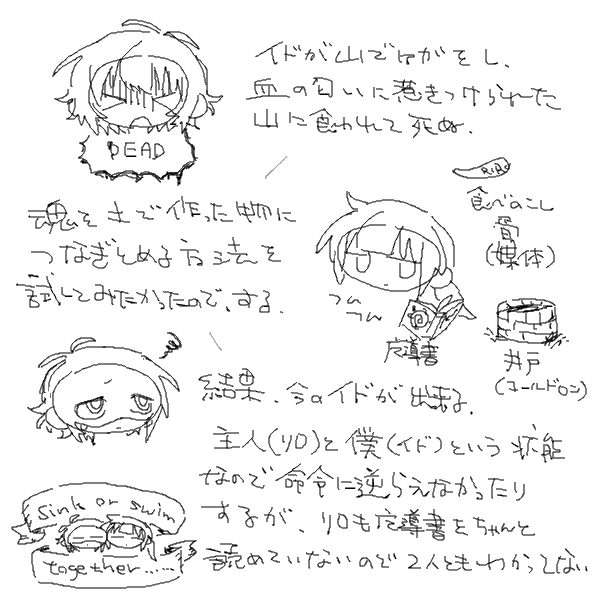 イドが山でけがをし、
血の匂いに惹きつけられた
山に食われて死ぬ.
DEAD
魂を土で作った物に
つなぎとめる方法を
試してみたかったので、する.
RiBo
食べのこし
骨
(媒体)
つん
つん
魔導書
井戸
(コールドロン)
結果、今のイドが出来る.
主人(リロ)と僕(イド)という状態
なので命令に逆らえなかったり
するが、リロも魔導書をちゃんと
読めていないので2人ともわかってない
Sink or swim
together......